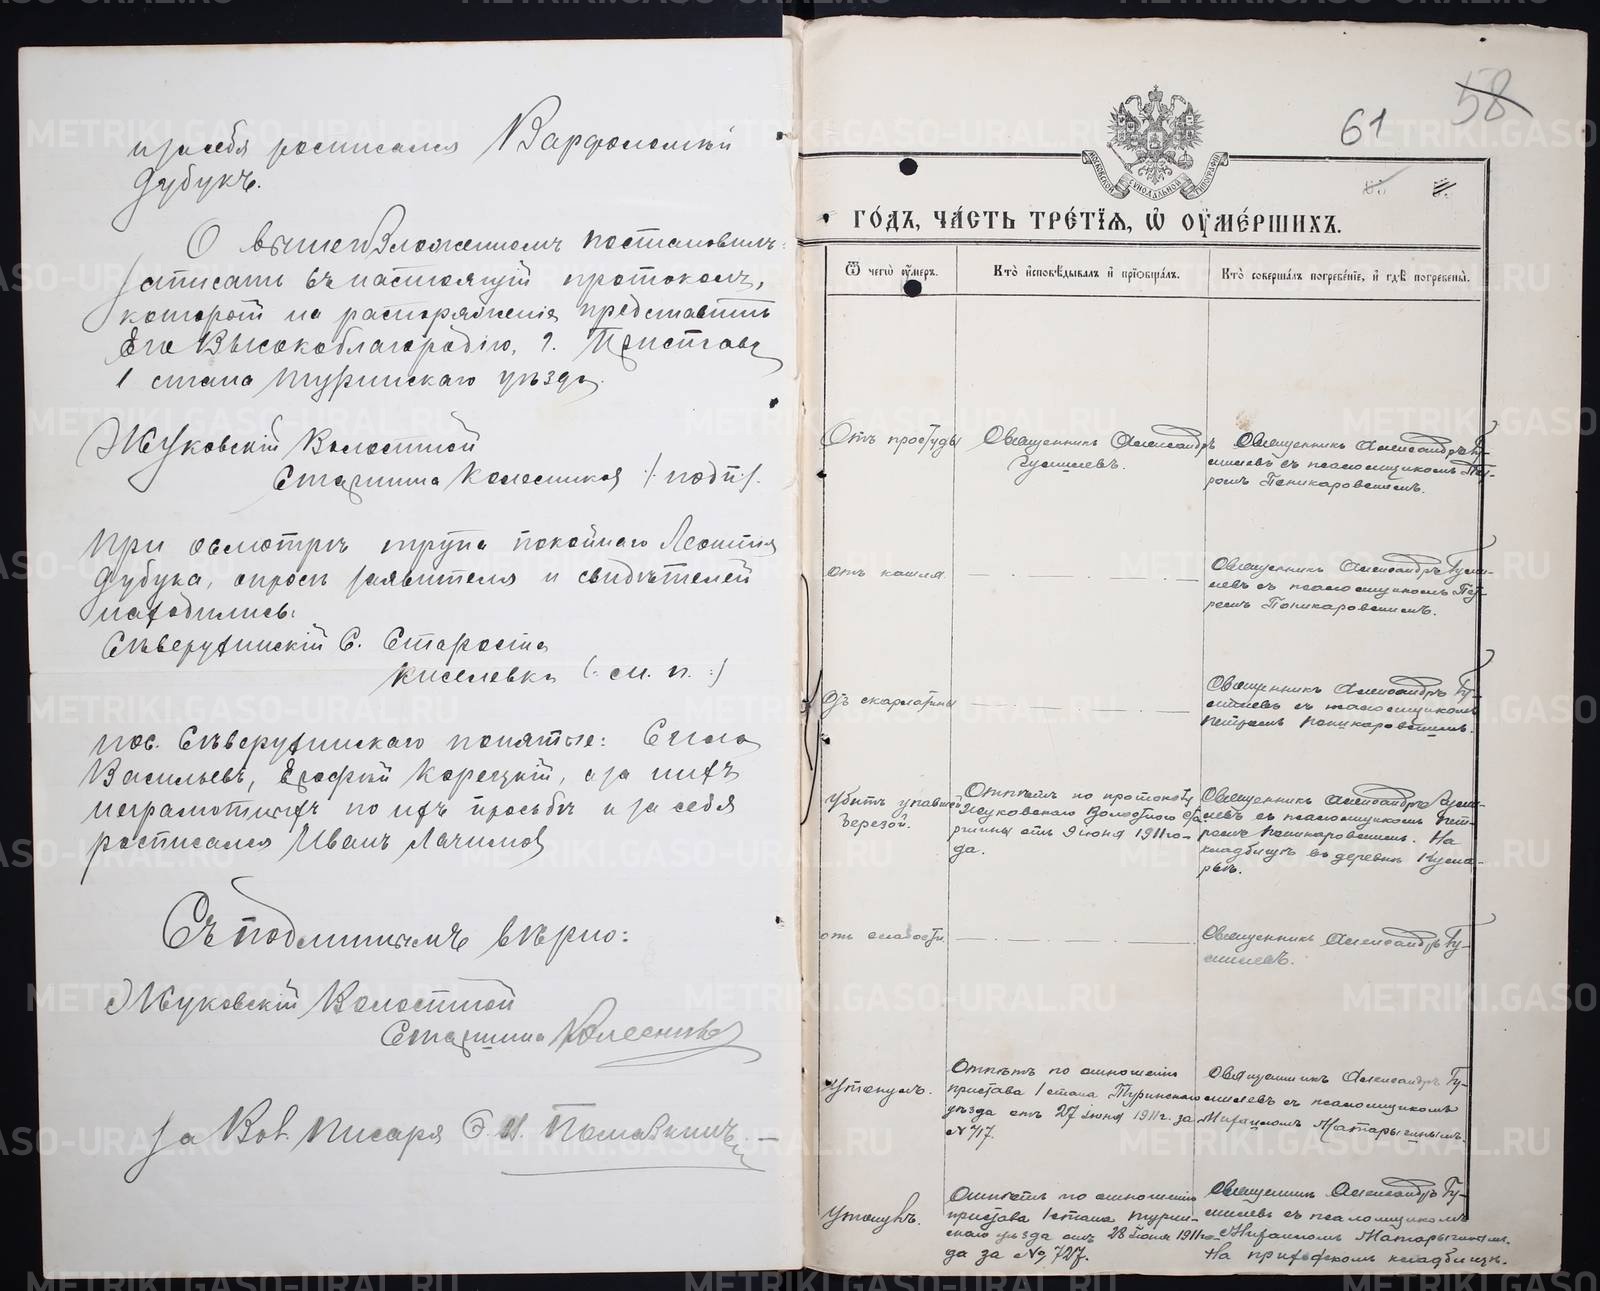 и за себя росписался Варфоломей
Дубукъ.
О вышеизложенномъ постановилъ:
записать въ настоящій протоколъ,
который на распоряженіе представить
Его Высокоблагородію, г. Приставу
1 стана Туринскаго уѣзда.
Жуковскій Волостной
Старшина Колесников /подп/.
При осмотрѣ трупа покойнаго Леонтія
Дубука, опросѣ заявителя и свидѣтелей
находились:
Сѣверухинскій С. Староста
Киселевъ (: см. п. :)
пос. Сѣверухинскаго понятые:
Васильевъ, Ерофей Корецкій, а за нихъ
неграмотныхъ по ихъ просьбѣ и за себя
росписался Иванъ Лачимов
Съ подлиннымъ вѣрно:
Жуковскій Волостной
Старшина Колесников
За Вол. Писаря
61
58
МОСКОВСКОЙ СѴНОДАЛЬНОЙ ТИПОГРАФІИ
ГО́ДЪ, ЧА́СТЬ ТРЕ́ТІѦ, Ѡ҆ ОУ҆МЕ́РШИХЪ.
Ѿ чегѡ̀ оу҆́меръ.
Кто̀ и҆сповѣ́дывалъ и҆ прїѡбща́лъ.
Кто̀ соверша́лъ погребе́нїе, и҆ гдѣ̀ погребены̀.
Отъ простуды
Священникъ Александръ
Гусилевъ.
Священникъ Александръ Гу-
силевъ съ псаломщикомъ Пет-
ромъ Поникаровскимъ.
отъ кашля
Священникъ Александръ Гуси-
левъ съ псаломщикомъ Пет-
ромъ Поникаровскимъ.
Отъ скарлатины
Священникъ Александръ Гу-
силевъ съ псаломщикомъ
Петромъ Поникаровскимъ.
Убитъ упавшей
березой.
Отпѣтъ по протоколу
Жуковскаго Волостного Ста-
ршины отъ 9 іюня 1911 го-
да.
Священникъ Александръ Гуси-
левъ съ псаломщикомъ Пет-
ромъ Поникаровскимъ. На
кладбищѣ въ деревнѣ
отъ слабости.
Священникъ Александръ Гу-
силевъ.
Утонулъ.
Отпѣтъ по отношенію
пристава 1 стана Туринскаго
уѣзда отъ 27 іюня 1911 г. за
№ 717.
Священникъ Александръ Гу-
силевъ съ псаломщикомъ
Михаиломъ Матарыгинымъ.
Утонулъ.
Отпѣтъ по отношенію
пристава 1 стана Турин-
скаго уѣзда отъ 28 Іюня 1911 го-
да за №, 727.
Священник Александръ Гу-
силевъ съ псаломщикомъ
Михаиломъ Матарыгинымъ.
На приходскомъ кладбищѣ.
METRIKI.GASO-URAL.RU